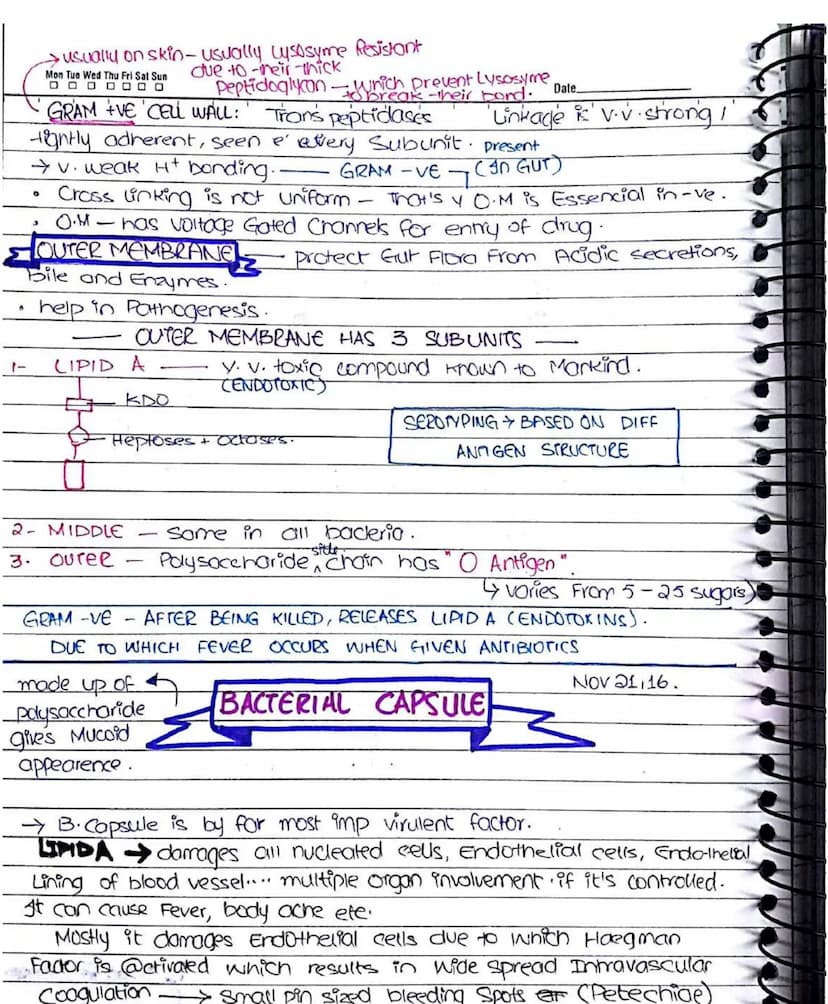 → usually on skin – usually Lysosyme Resistant
due to their thick
peptidoglycan → which prevent Lysosyme
to break their bond.
Mon Tue Wed Thu Fri Sat Sun
Date
GRAM +VE CELL WALL: Trans peptidases Linkage is V.V.strong /
tightly adherent, seen e' every Subunit.
→ v. weak H+ bonding. — GRAM -VE present (In GUT)
• Cross linking is not uniform – That's y O.M is Essencial in -ve.
• O.M – has voltage Gated Channels for entry of drug.
OUTER MEMBRANE — protect Gut Flora From Acidic secretions,
bile and Enzymes.
• help in Pathogenesis.
— OUTER MEMBRANE HAS 3 SUBUNITS —
1- LIPID A — V. V. toxic compound known to Mankind.
(ENDOTOXIC)
KDO
Heptoses + Octoses.
SEROTYPING → BASED ON DIFF
ANTIGEN STRUCTURE
2- MIDDLE – Same in all bacteria.
3. OUTER – Polysaccharide side chain has "O Antigen".
↳ varies From 5-25 sugars)
GRAM -VE – AFTER BEING KILLED, RELEASES LIPID A (ENDOTOXINS).
DUE TO WHICH FEVER OCCURS WHEN GIVEN ANTIBIOTICS
made up of
polysaccharide
gives Mucoid
appearence.
BACTERIAL CAPSULE
NOV 21, 16.
→ B. Capsule is by far most imp virulent factor.
LIPID A → damages all nucleated cells, Endothelial cells, Endothelial
Lining of blood vessel.... multiple organ involvement. if it's controlled.
It can cause Fever, body ache etc.
Mostly it damages Endothelial cells due to which Haegman
Factor is @ctivated which results in wide spread Intravascular
Coagulation → small pin sized bleeding spots (Petechiae)